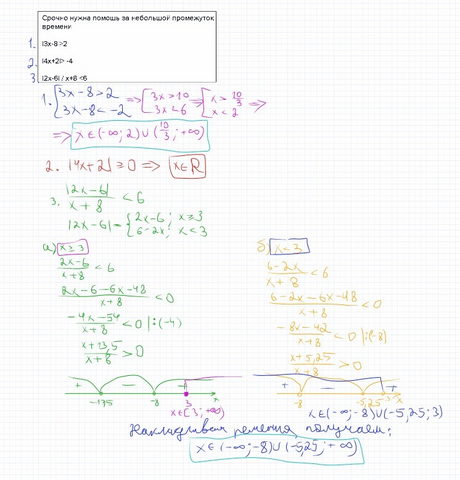 Срочно нужна помощь за небольшой промежуток
времени
1. I3x-8 >2
2. I4x+2I> -4
3 I2x-6I / x+8 <6
1. [3x-8>2 => [3x>10 => [x>10/3 =>
3x-8<-2 3x<6 x<2
=> x∈(-∞; 2)∪(10/3; +∞)
2. |4x+2|≥0 => x∈R
3. |2x-6|/x+8 < 6
|2x-6|={2x-6; x≥3
6-2x; x<3
а) x≥3
2x-6/x+8 < 6
2x-6-6x-48/x+8 < 0
-4x-54/x+8 < 0 |:(-4)
x+13,5/x+8 > 0
+ - +
-13,5 -8 3 x
x∈[3; +∞)
б) x<3
6-2x/x+8 < 6
6-2x-6x-48/x+8 < 0
-8x-42/x+8 < 0 |:(-8)
x+5,25/x+8 > 0
+ - +
-8 -5,25 3 x
x∈(-∞;-8)∪(-5,25; 3)
Накладывая решения, получаем:
x∈(-∞;-8)∪(-5,25; +∞)